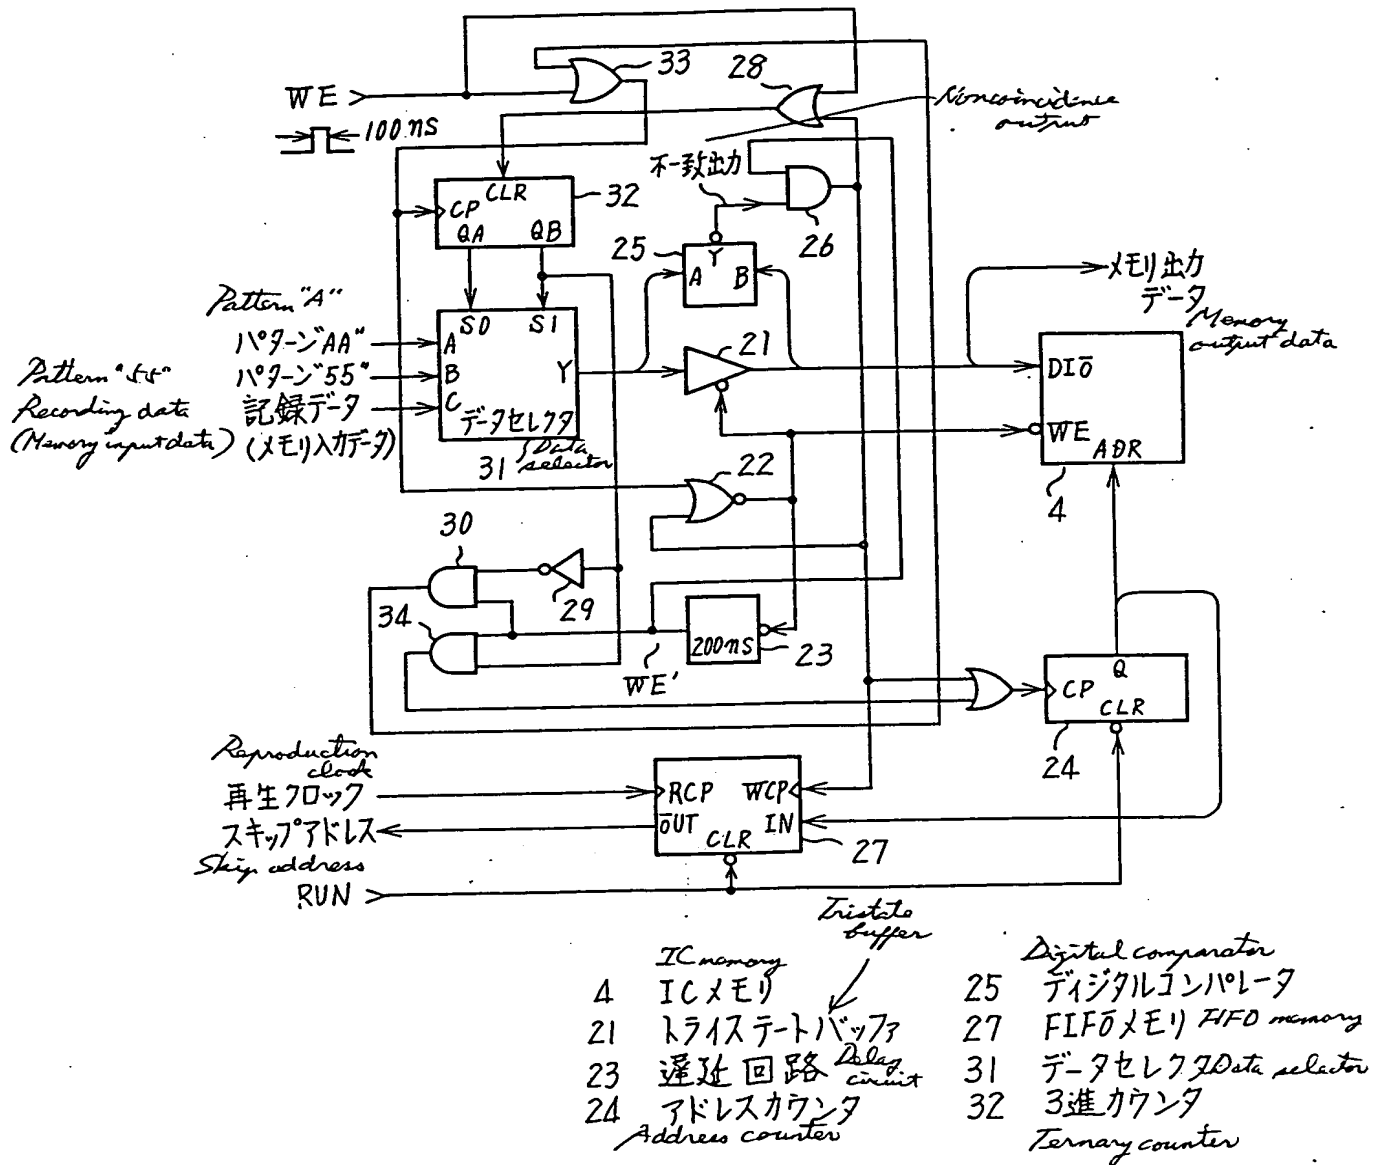 33
28
WE
100 ns
Noncoincidence
output
不一致出力
CLR
CP
QA QB
32
26
25
Y
A B
メモリ出力
データ
Memory
output data
Pattern "A"
パターン"AA"
Pattern "55"
パターン"55"
Recording data
記録データ
(Memory input data)
(メモリ入力データ)
S0 S1
A
B
C
Y
データセレクタ
31
Data
selector
21
DIO
WE
ADR
4
22
30
29
34
200ns
23
WE'
Q
CP
CLR
24
Reproduction
clock
再生クロック
スキップアドレス
Skip address
RUN
RCP WCP
OUT IN
CLR
27
Tristate
buffer
IC memory
4 ICメモリ
21 トライステートバッファ
23 遅延回路 Delay
circuit
24 アドレスカウンタ
Address counter
Digital comparator
25 ディジタルコンパレータ
27 FIFOメモリ FIFO memory
31 データセレクタ Data selector
32 3進カウンタ
Ternary counter